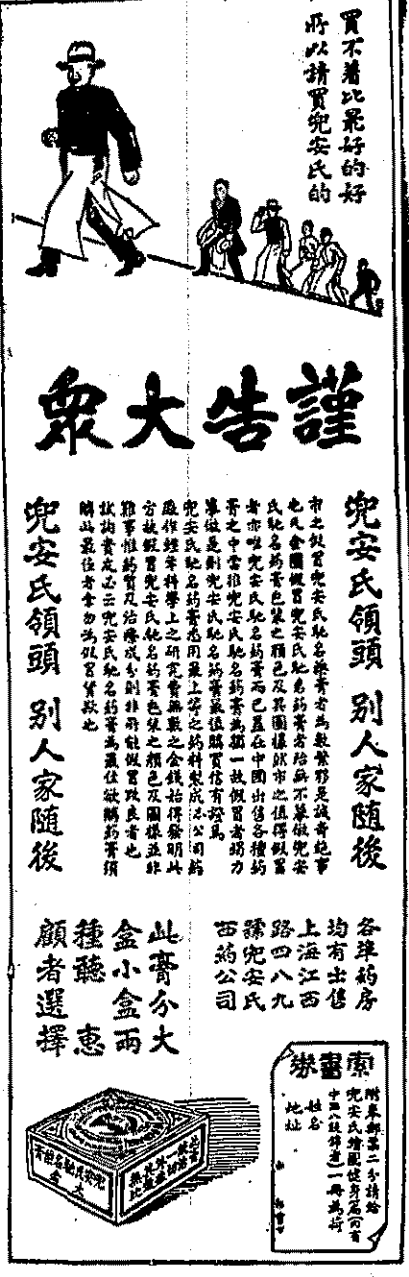 買不着比最好的好
所以請買兜安氏的
謹告大衆
兜安氏領頭 別人家隨後
市上假冒兜安氏馳名藥膏者為數繁夥是誠奇事
也凡會圖假冒兜安氏馳名药膏者殆無不摹倣兜安
氏馳名药膏包裝之顏色及其圖樣然市上值得假冒
者亦唯兜安氏馳名药膏而已蓋在中國出售各種药
膏之中當推兜安氏馳名药膏為獨一故假冒者竭力
摹倣是則兜安氏馳名药膏最值購買信有證焉
兜安氏馳名药膏悉用最上等之药料製成本公司药
廠作經年科學上之研究費無數之金錢始得發明此
方故假冒兜安氏馳名药膏包裝之顏色及圖樣並非
難事惟药質及治療成分則非所能假冒改良者也
試詢貴友必云兜安氏馳名药膏為最佳欲購药膏須
購此最佳者幸勿為假冒貨欺也
兜安氏領頭 別人家隨後
各埠药房
均有出售
上海江西
路四八九
號兜安氏
西药公司
此膏分大
盒小盒兩
種聽 惠
顧者選擇
索書券
附奉郵票二分請給
兜安氏繪圖健身篇
一冊為荷
姓名
地址
兜安氏馳名药膏
大盒
無比